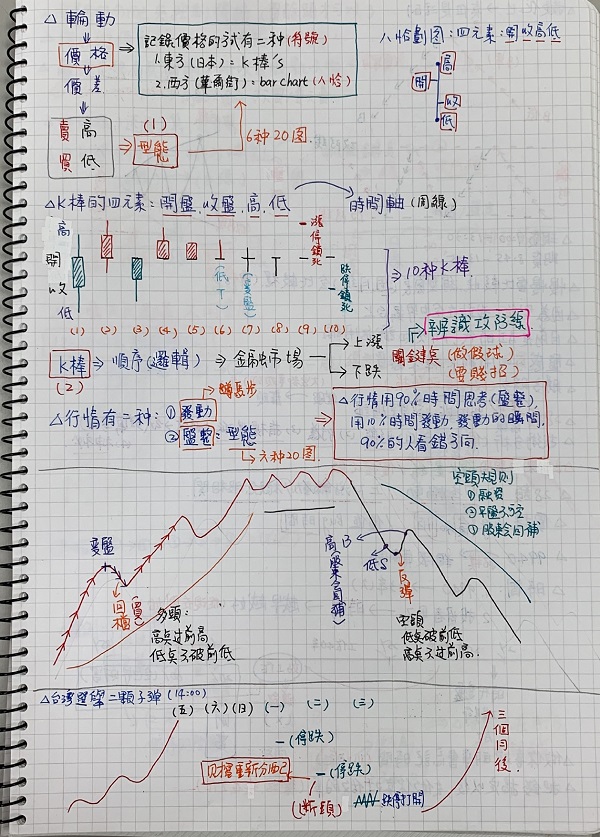 △輪動
價格
價差
賣 高
買 低
(1)
型態
6种20图
記錄價格的方式有二种(符號)
1.東方(日本)=K棒's
2.西方(華爾街)=bar chart(八恰)
八恰劃图:四元素:開收高低
高
開
收
低
△K棒的四元素:開盤、收盤、高、低
時間軸(周線)
高
開
收
低
(1) (2) (3) (4) (5) (6) (7) (8) (9) (10)
(低T)
(變盤)
漲停鎖死
跌停鎖死
⇒10种K棒
辨識攻防線
K棒⇒順序(邏輯)⇒金融市場
上漲
下跌
關鍵點(做假球)
(耍賤招)
(2)
△行情有二种:①發動
②盤整:型態
六种20图
△行情用90%時間思考(盤整),
用10%時間發動,發動的瞬間,
90%的人看錯方向.
空頭規則
①融資
②平盤下空
③股東會回補
變盤
回檔(買)
多頭:
高点过前高
低点不破前低
高B
低S
反彈
空頭
低点破前低
高点不过前高.
△台灣選舉二顆子彈(14:00)
(五) (六)(日) (一) (二) (三)
(停跌)
(停跌)
見檔重新分配
(断頭)
跌停打開
三個月後.